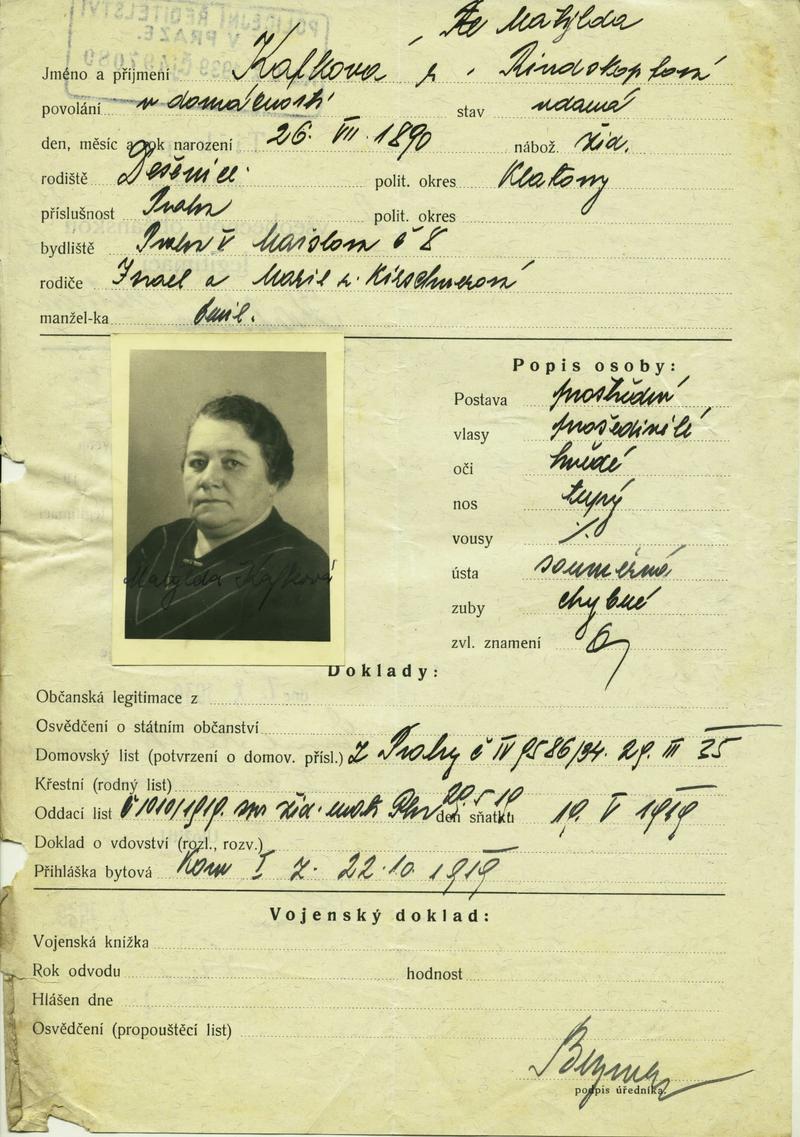 POLICEJNÍ ŘEDITELSTVÍ
V PRAZE.
Matylda
Jméno a příjmení Kafkova r. Rindskopfová
povolání v domácnosti stav vdaná
den, měsíc a rok narození 26. VII. 1890 nábož. žid.
rodiště Dešenice polit. okres Klatovy
příslušnost Praha polit. okres
bydliště Praha V Maislova č 8
rodiče Israel a Marie r. Kirschnerová
manžel-ka Emil.
Popis osoby:
Postava prostřední
vlasy prošedivělé
oči hnědé
nos tupý
vousy ./.
ústa souměrná
zuby chybné
zvl. znamení
Matylda Kafková
Doklady:
Občanská legitimace z
Osvědčení o státním občanství
Domovský list (potvrzení o domov. přísl.) z Prahy č IV 9586/34. 29. III 35
Křestní (rodný list)
Oddací list č 1010/1919. žid. 20 5 19 den sňatku 19. V 1919
Doklad o vdovství (rozl., rozv.)
Přihláška bytová Kom I z. 22.10.1919
Vojenský doklad:
Vojenská knížka
Rok odvodu hodnost
Hlášen dne
Osvědčení (propouštěcí list)
podpis úředníka.